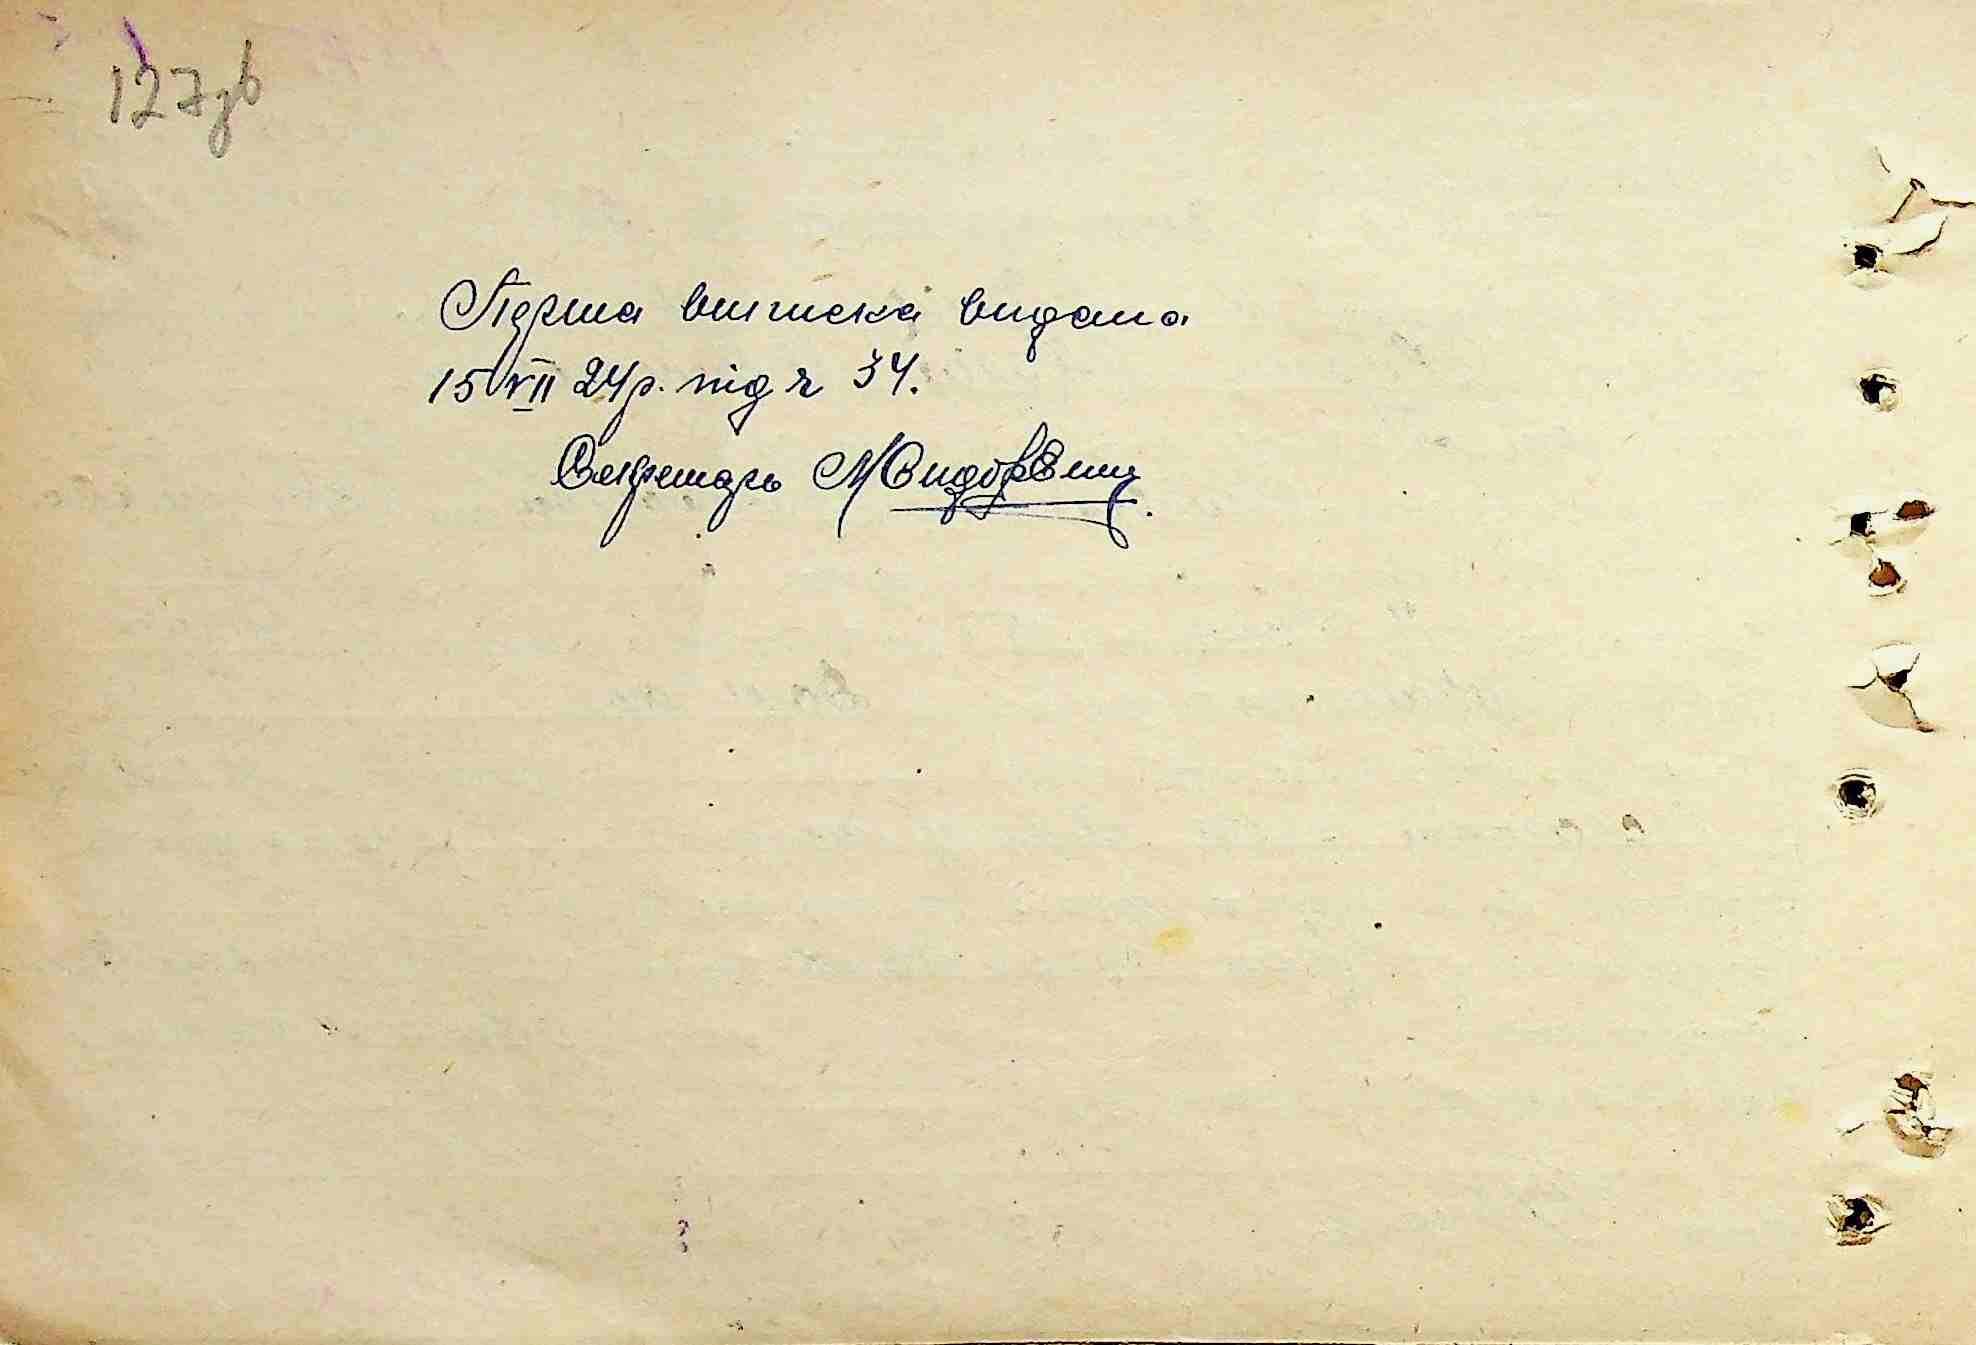 127зв
Перша виписка видана
15 VII 24 р. під ч 34.
Секретарь М Сидоревич